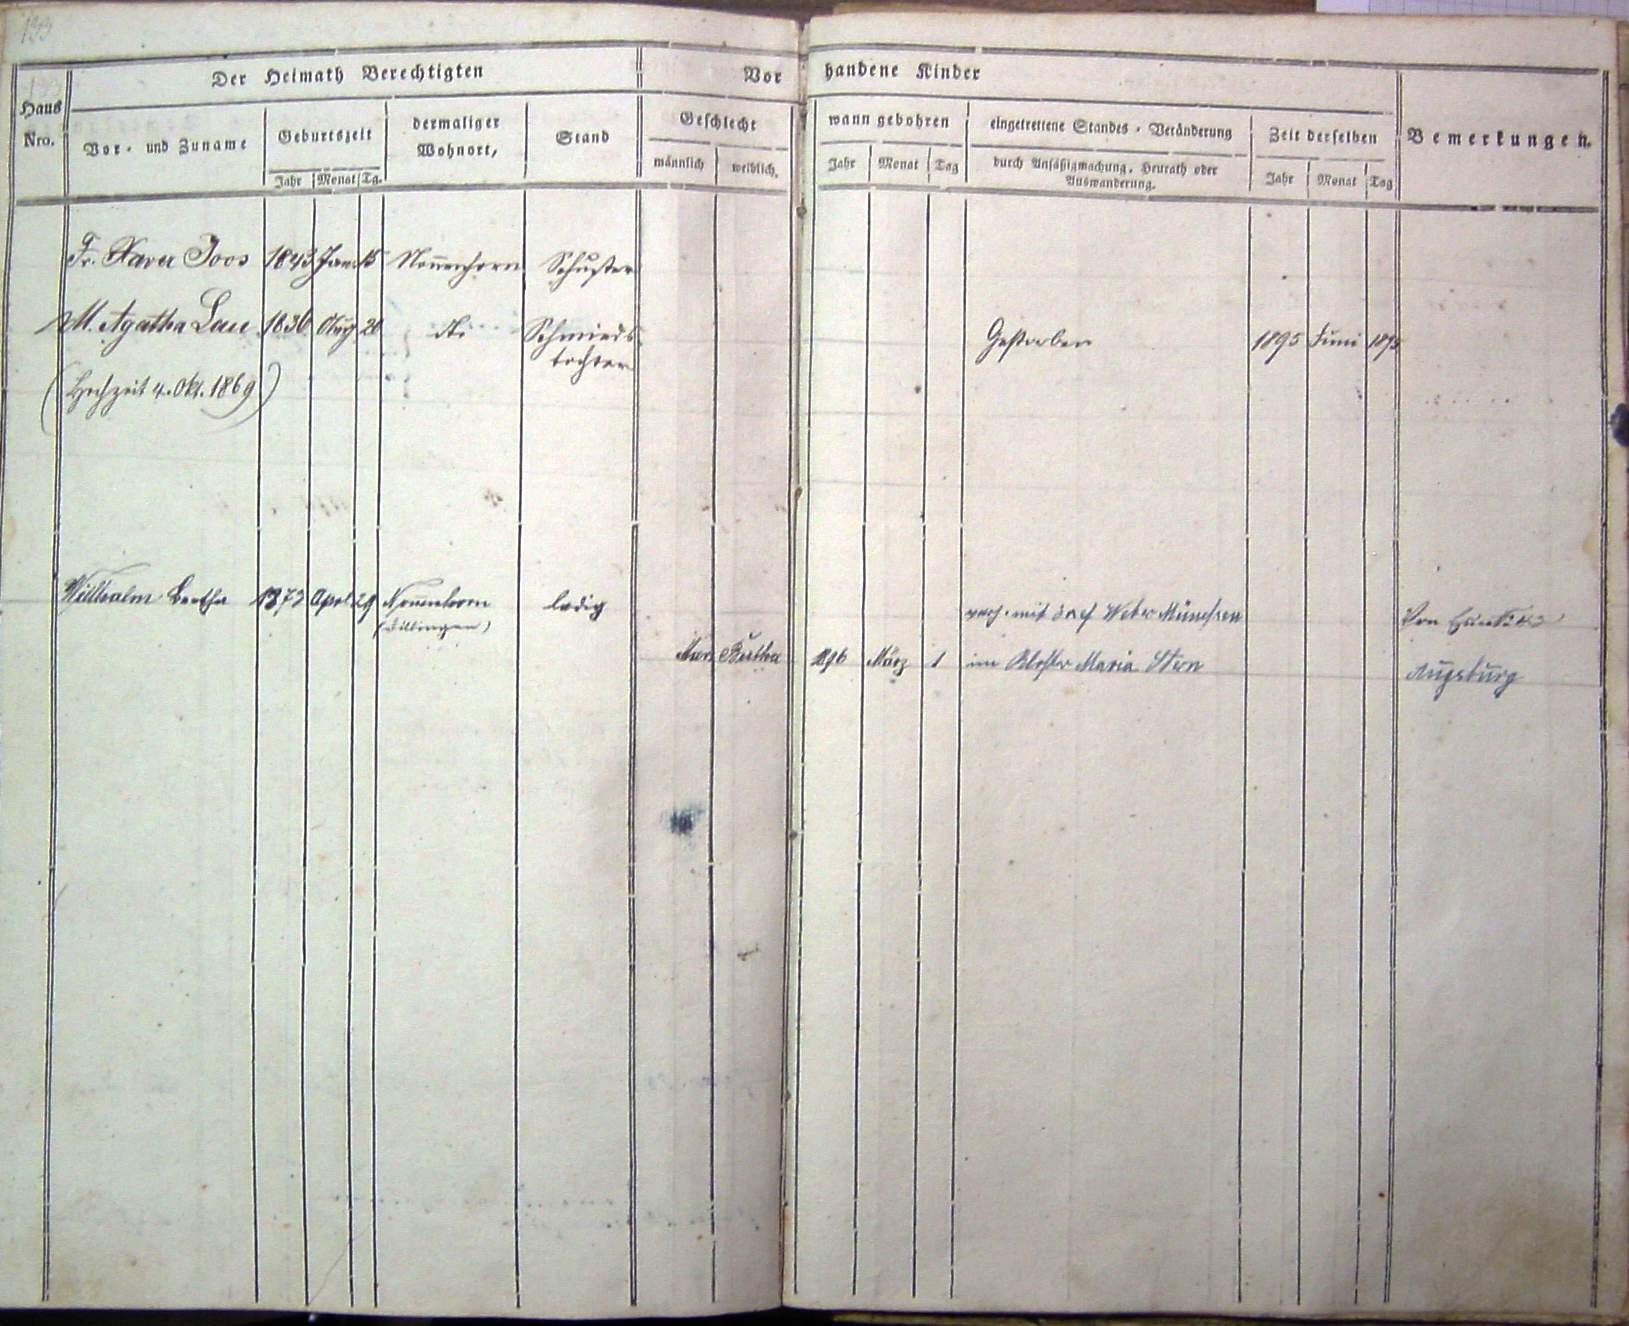 133
Der Heimath Berechtigten
Vor handene Kinder
Haus Nro.
Vor- und Zuname
Geburtszeit
Jahr Monat Tg.
dermaliger Wohnort,
Stand
Geschlecht
männlich weiblich.
wann gebohren
Jahr Monat Tag
eingetrettene Standes-Veränderung
durch Ansäßigmachung, Heurath oder
Auswanderung.
Zeit derselben
Jahr Monat Tag
Bemerkungen.
Fr. Xaver Joos 1843 Jan. 15 Nonnenhorn Schuster
M. Agatha Lau 1836 Aug 20 do. Schmieds
tochter
Gestorben 1895 Juni 1895
(Hochzeit 4. Okt. 1869)
Willhalm Bertha 1873 April 29 Nonnenhorn ledig
(Dillingen)
verh. mit Josef Weber München
Mar. Bertha 1896 März 1 im Kloster Maria Stern
Augsburg